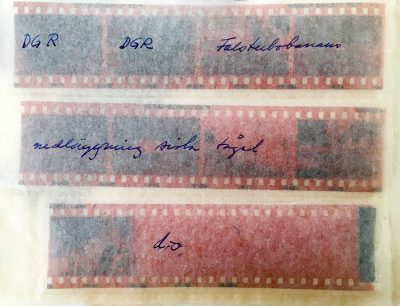 DGR DGR Falsterbobanans
nedläggning sista tåget
d:o